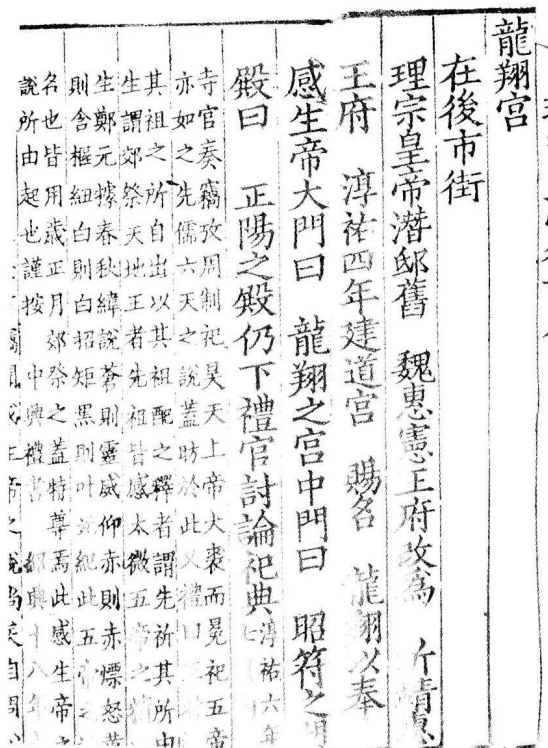 龍翔宮
在後市街
理宗皇帝潛邸舊 魏惠憲王府改爲 沂靖惠
王府 淳祐四年建道宮 賜名 龍翔以奉
感生帝大門曰 龍翔之宮中門曰 昭符之門
殿曰 正陽之殿仍下禮官討論祀典淳祐六年
寺官奏竊攷周制祀昊天上帝大裘而冕祀五帝
亦如之先儒六天之說蓋昉於此又禮曰
其祖之所自出以其祖配之釋者謂先祈其所由
生謂郊祭天地王者先祖皆感太微五帝之精
生鄭元據春秋緯說蒼則靈威仰赤則赤熛怒黃
則含樞紐白則白招矩黑則叶光紀此五帝之
名也皆用歲正月郊祭之蓋特尊焉此感生帝之
說所由起也謹按 中興禮書 紹興十八年
感生帝之說